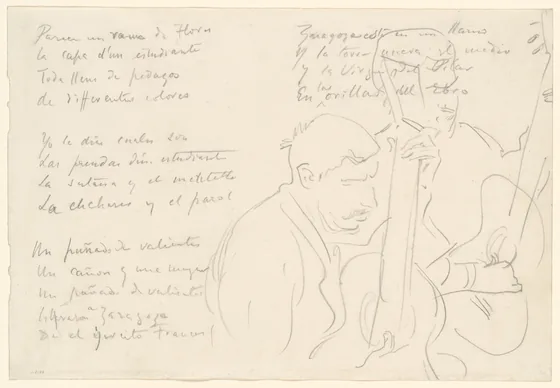 Parece un ramo de Flores
la capa d'un estudiante
Toda llena de pedazos
de differentes colores
Yo le diré cuales son
Las prendas d'un estudiante
La sotana y el
La cuchara y el
Un puñado de valientes
Un cañon y une muger
un puñado de valientes
Zaragoza
De el ejército Frances
Zaragoza esta en un llano
Y la torre nueva al medio
y la Virgen del Pilar
En las orillas del Ebro